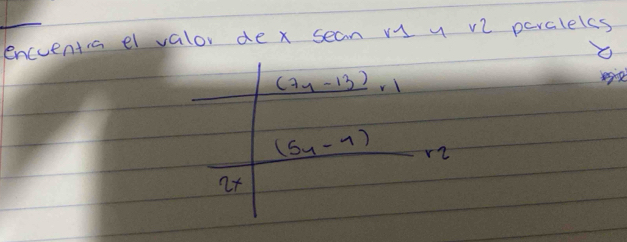 encuentra el valor de x sean r1 y r2 paralelas
y
(7y-13) r1
(5y-4) r2
2x